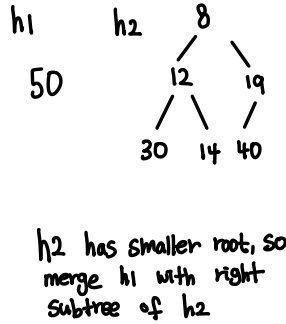 h1 h2 8
50 12 19
30 14 40
h2 has smaller root, so
merge h1 with right
subtree of h2